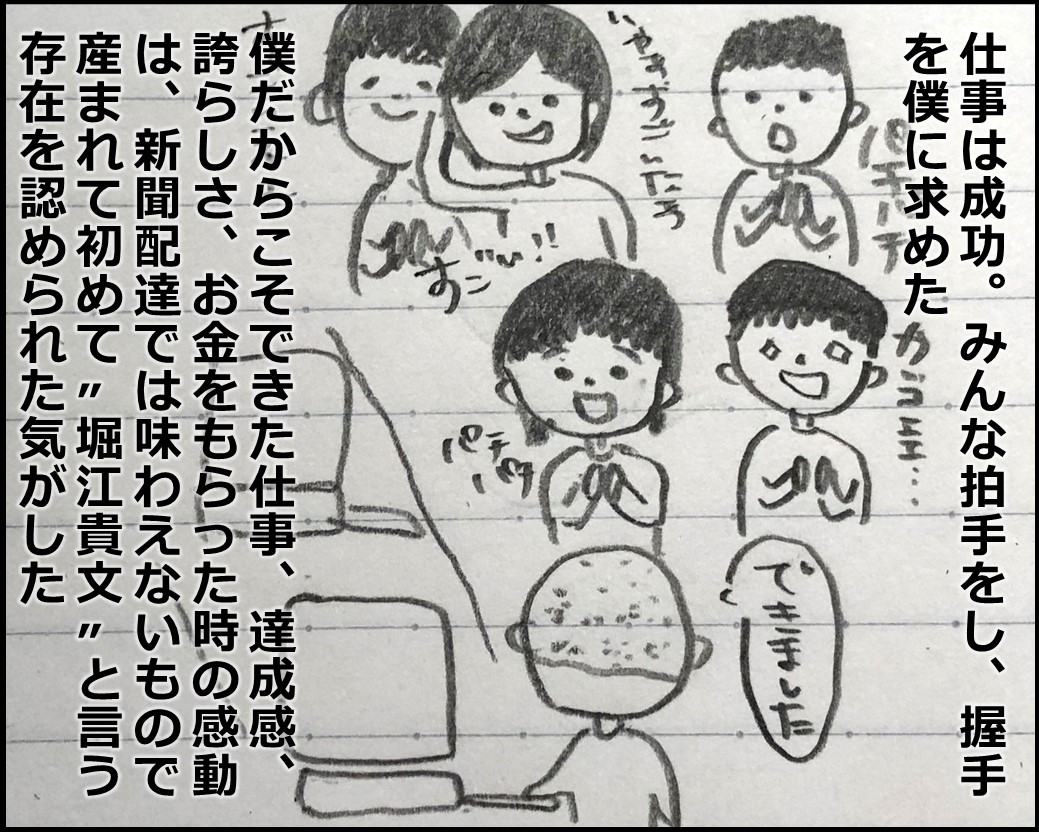 仕事は成功。みんな拍手をし、握手
を僕に求めた
パチパチ
カンゴエエ...
いやますごいたろ
すごい!!
パチ
パチ
できました
僕だからこそできた仕事、達成感、
誇らしさ、お金をもらった時の感動
は、新聞配達では味わえないもので
産まれて初めて〃堀江貴文〃と言う
存在を認められた気がした